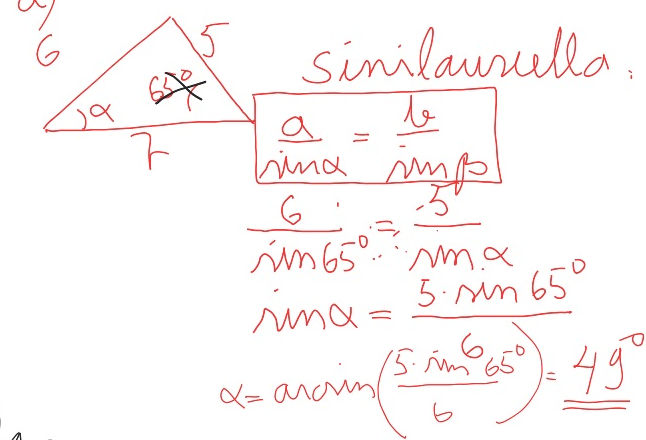 a)
6
5
65°
α
7
sinilauseella.
a/sinα = b/sinβ
6/sin65° = 5/sinα
sinα = 5·sin65°/6
α = arcsin(5·sin65°/6) = 49°